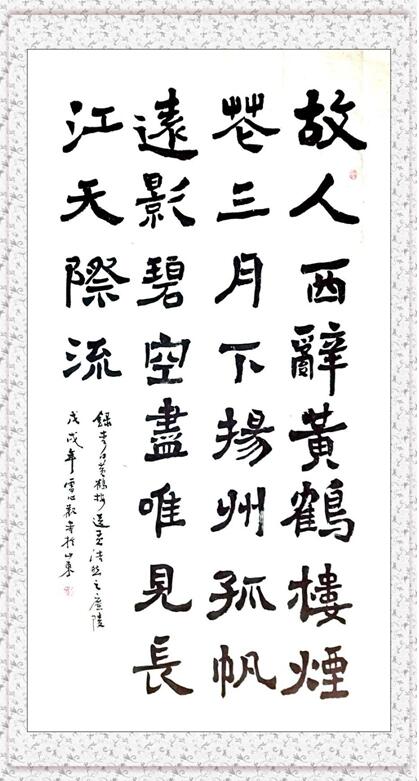 故人西辭黃鶴樓煙
花三月下揚州孤帆
遠影碧空盡唯見長
江天際流
錄李白黃鶴樓送孟浩然之廣陵
戊戌年書於山東